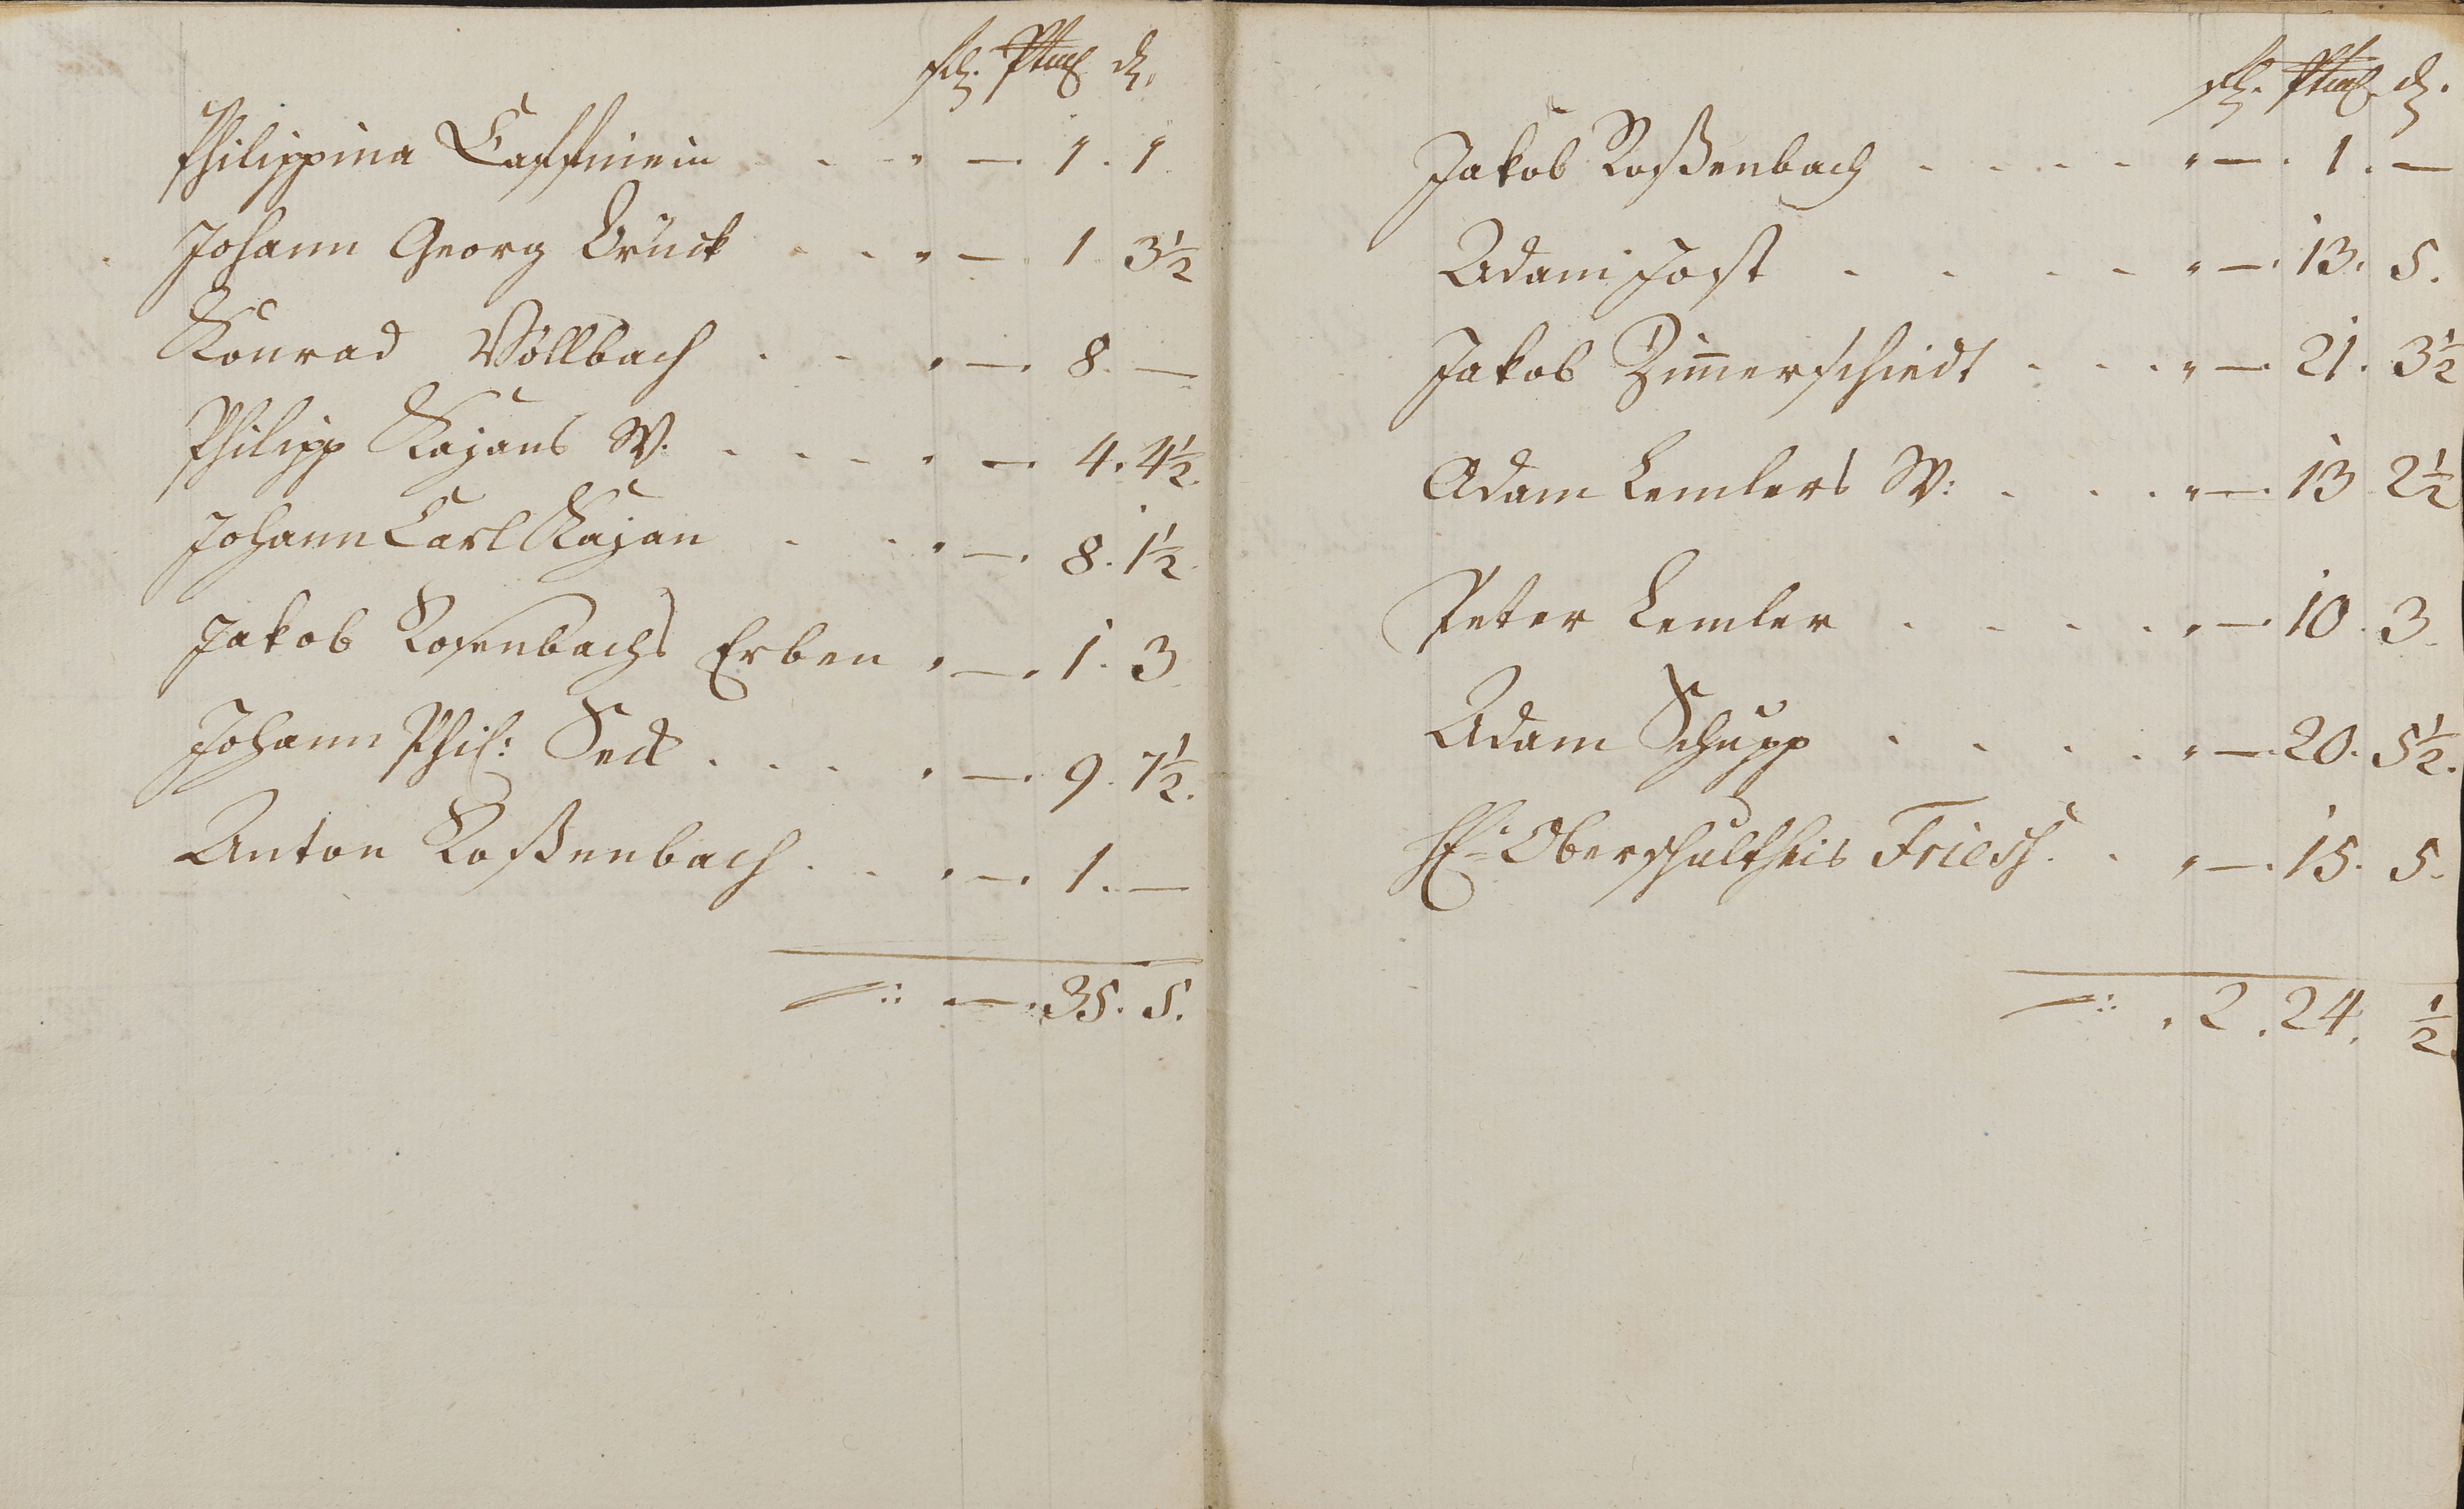 Philippina - - " — . 1 . 1
Johann Georg Brück - - " — . 1 . 3½
Konrad Vollbach . - . " — . 8 . —
Philipp Kajans W. - - - - . — . 4 . 4½.
Johann Carl Kajan - - " — . 8 . 1½.
Jakob Rosenbachs Erben " — . 1 . 3
Johann Phil: Seck . . . . — . 9 . 7½.
Anton Roßenbach . . . — . 1 . —
— . 35 . 5.
d.
Jakob Roßenbach . . . . " — . 1 . —
Adam Jost - - - - " — . 13 . 5.
Jakob Zimmerschiedt . . . " — . 21 . 3½
Adam Lemlers W: . . . " — . 13 2½
Peter Lemler . . . . " — . 10 . 3.
Adam Schupp . . . . " — . 20 . 5½.
H: Oberschultheis Friesch . . " — . 15 . 5.
. 2 . 24 . ½